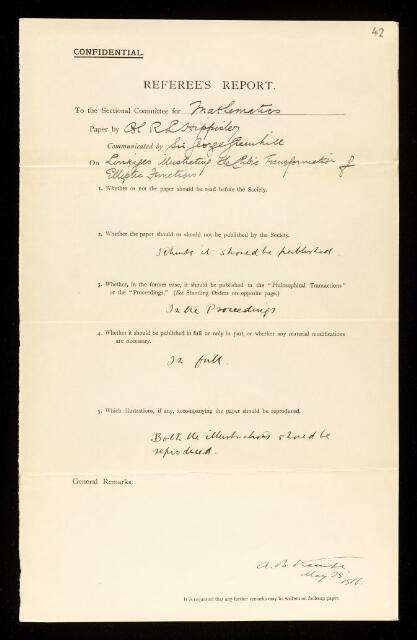 42
CONFIDENTIAL.
REFEREE'S REPORT.
To the Sectional Committee for Mathematics
Paper by Col R L Hippisley
Communicated by Sir George Greenhill
On Linkages illustrating the Cubic Transformation of
Elliptic Functions
1. Whether or not the paper should be read before the Society.
2. Whether the paper should or should not be published by the Society.
I think it should be published.
3. Whether, in the former case, it should be published in the "Philosophical Transactions"
or the "Proceedings." (See Standing Orders on opposite page.)
In the Proceedings
4. Whether it should be published in full or only in part, or whether any material modifications
are necessary.
In full.
5. Which illustrations, if any, accompanying the paper should be reproduced.
Both the illustrations should be
reproduced.
General Remarks.
A. B. Kempe
May 29 1918.
It is requested that any further remarks may be written on foolscap paper.